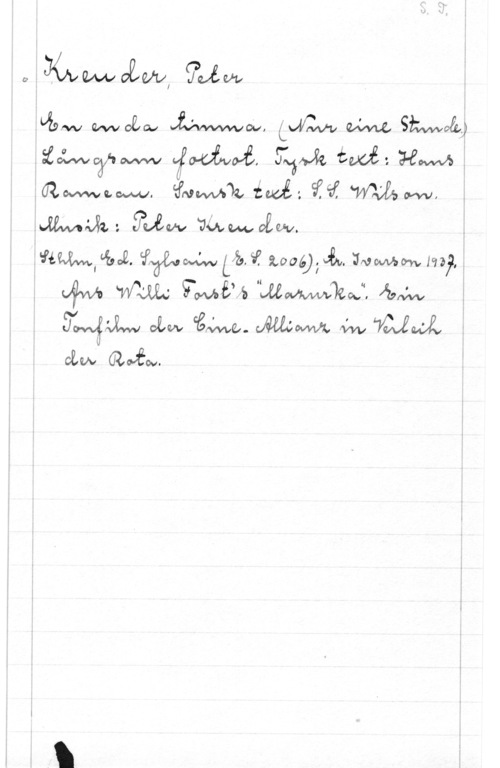 S. T.
Kreuder, Peter
En enda timma. (Nur eine Stunde)
Långsam foxtrot. Tysk text: Hans
Rameau. Svensk text: S. S. Wilson.
Musik: Peter Kreuder.
Sthlm, Ed. Sylvain (E. S. 2006); tr. Ivarson 1937.
Aus Willi Forst's "Mazurka". Ein
Tonfilm der Cine-Allianz in Verleih
der Rota.